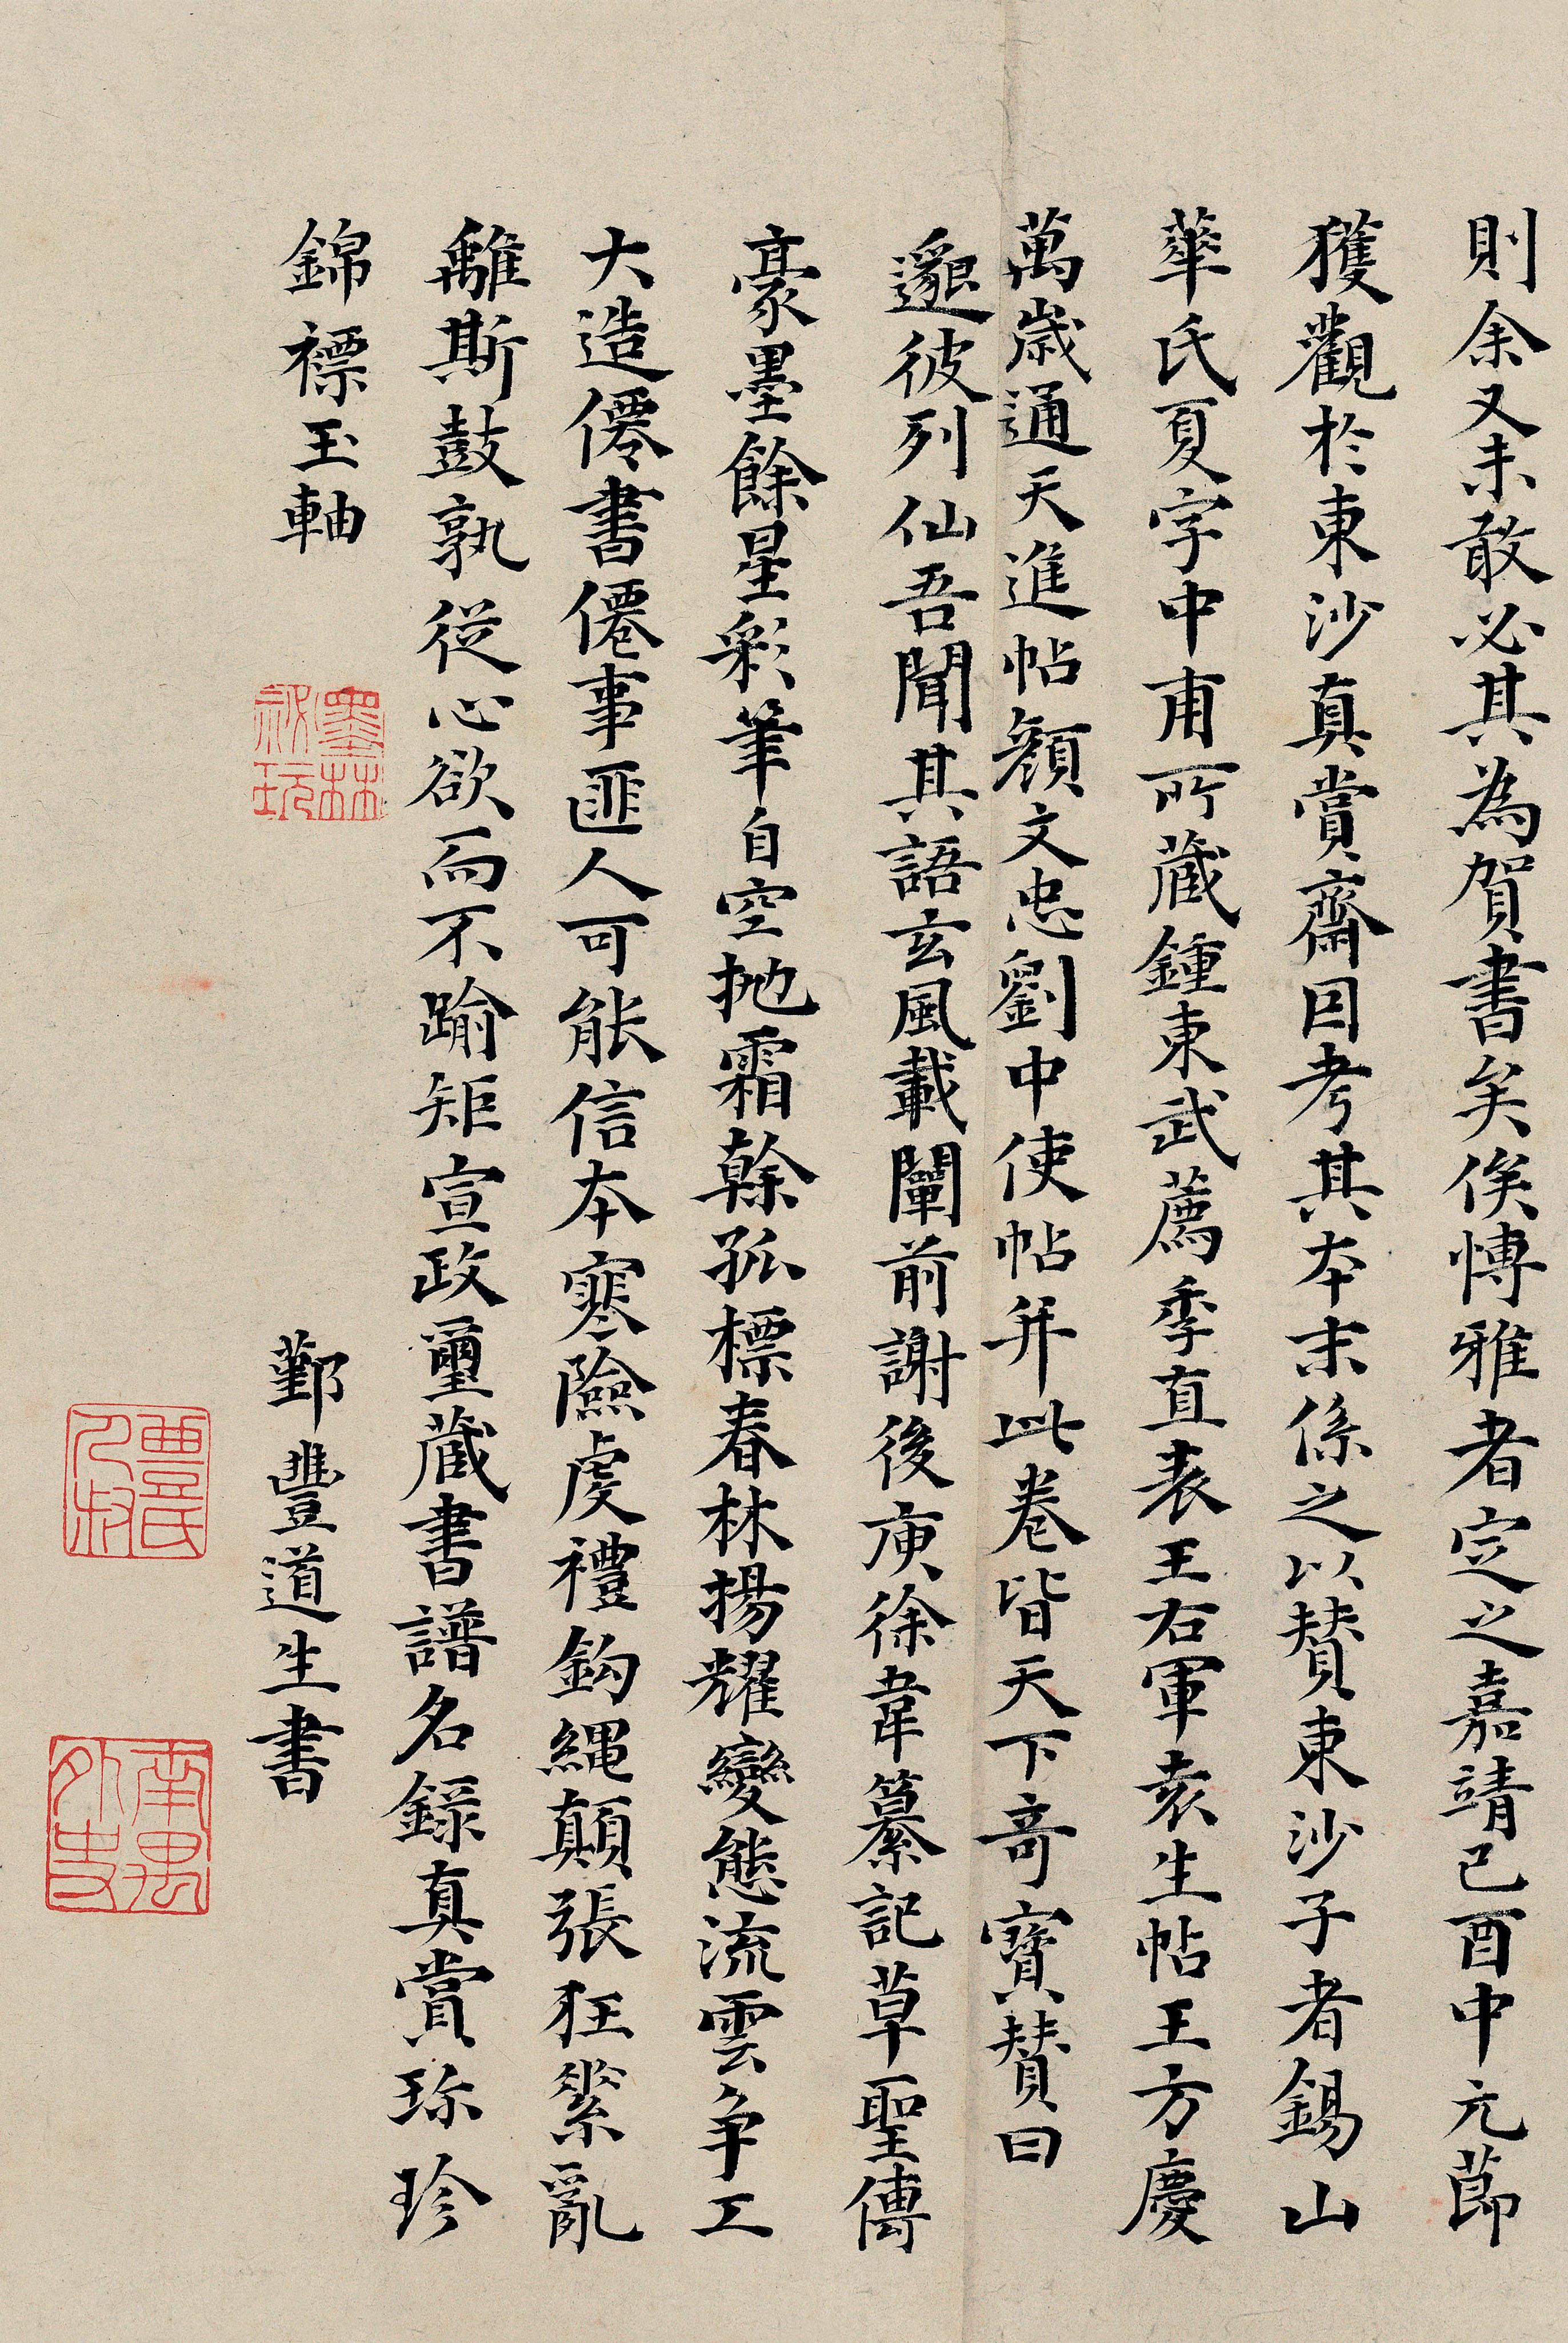 則余又未敢必其為賀書矣俟愽雅者定之嘉靖己酉中元節
獲觀於東沙真賞齋因考其本末係之以贊東沙子者錫山
華氏夏字中甫所藏鍾東武薦季直表王右軍袁生帖王方慶
萬歲通天進帖顏文忠劉中使帖并此卷皆天下奇寶贊曰
邈彼列仙吾聞其語玄風載闡前謝後庾徐韋纂記草聖傳
豪墨餘星彩筆自空拋霜榦孤標春林揚耀變態流雲争工
大造僊書僊事匪人可能信本寒險虔禮鈎繩顛張狂縈亂
離斯鼓孰從心欲而不踰矩宣政璽藏書譜名錄真賞珎珍
錦褾玉軸
鄞豐道生書
墨林祕玩
豐氏人叔
南禺外史